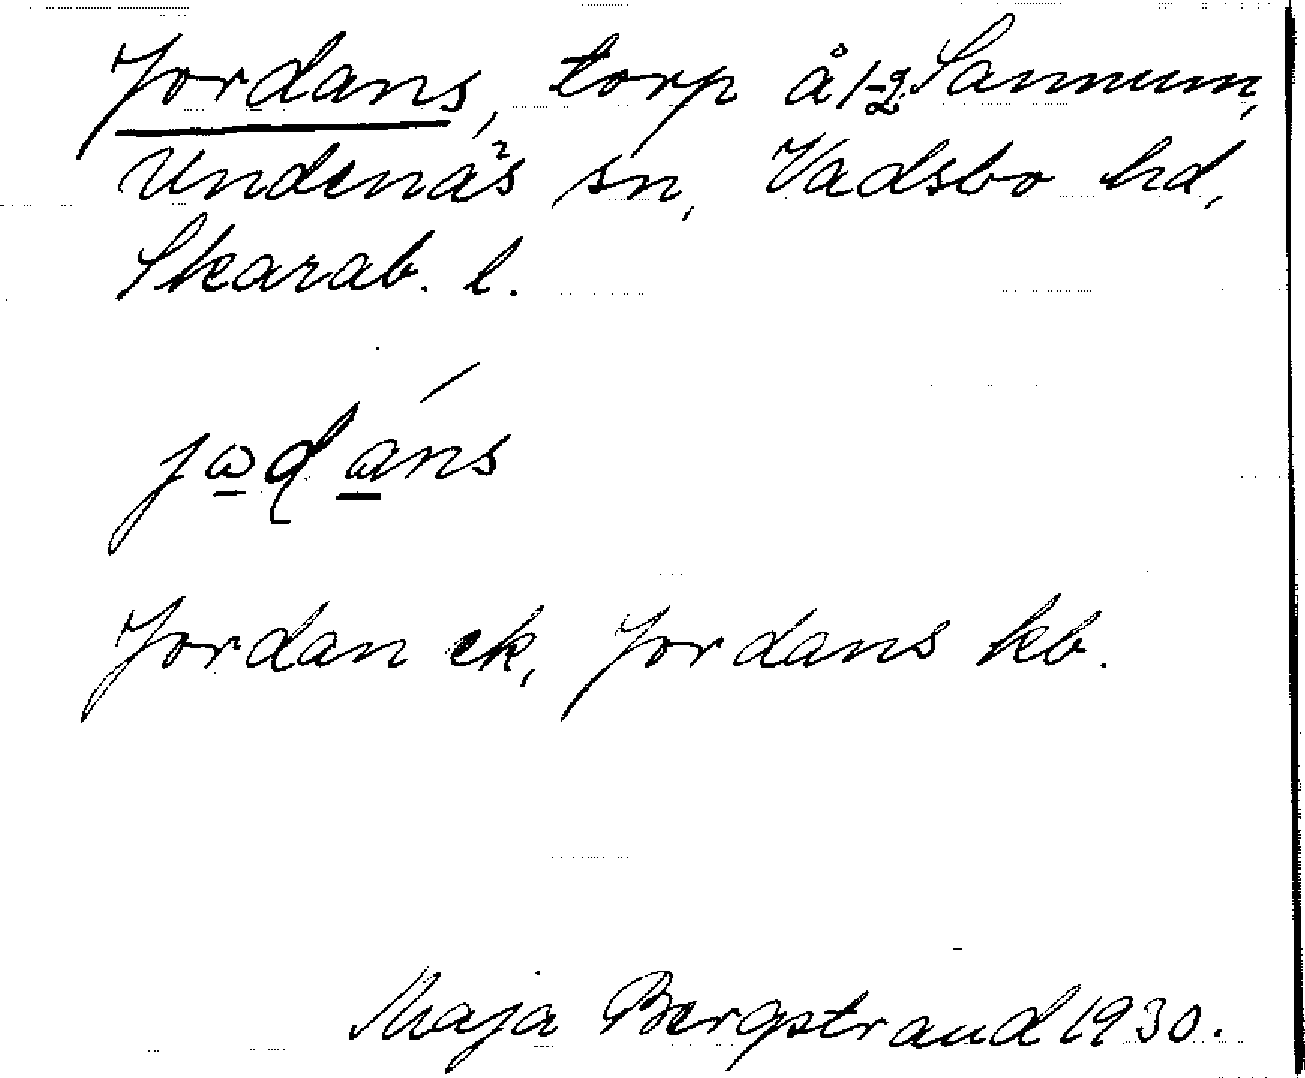 Jordans, torp å 1-2 Sannum,
Undenäs sn, Vadsbo hd,
Skarab. l.
Jordan ek, Jordans kb.
Maja Bergstrand 1930.